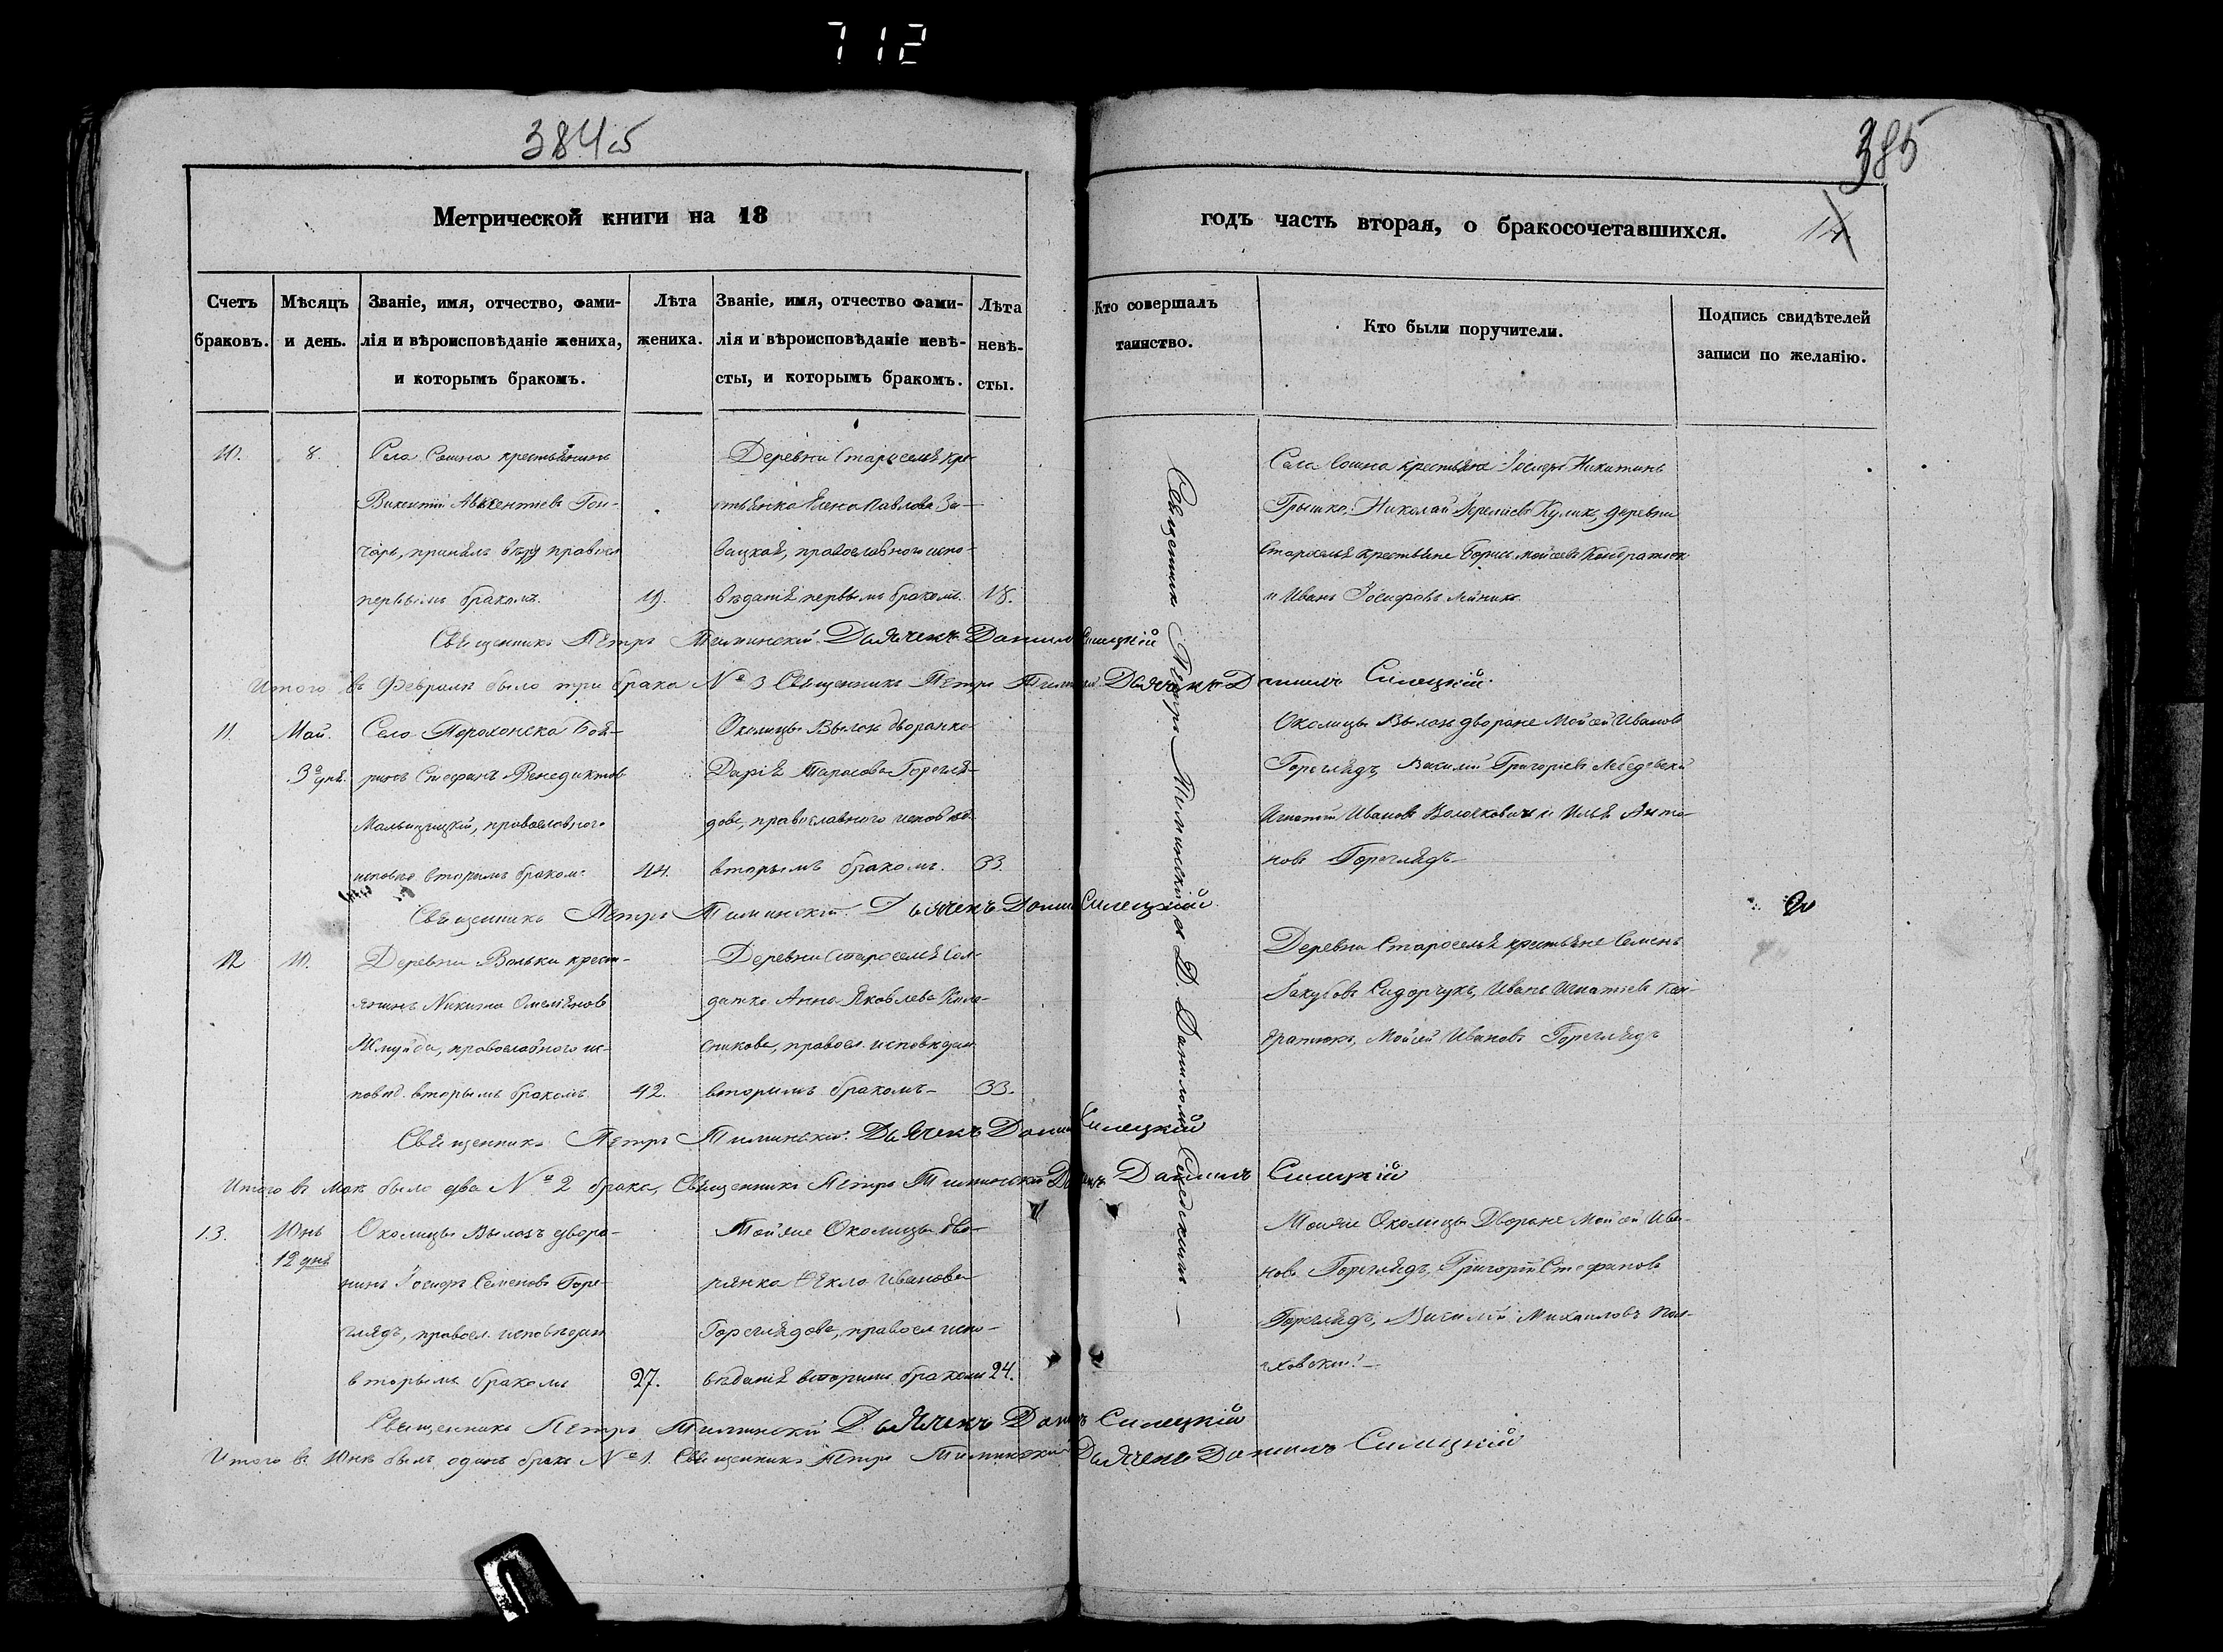 712
384об
385
14
Метрической книги на 18
годъ часть вторая, о бракосочетавшихся.
Счетъ браковъ.
Мѣсяцъ и день.
Званіе, имя, отчество, фами-
лія и вѣроисповѣданіе жениха,
и которымъ бракомъ.
Лѣта жениха.
Званіе, имя, отчество фами-
лія и вѣроисповѣданіе невѣ-
сты, и которымъ бракомъ.
Лѣта невѣ-
сты.
Кто совершалъ
таинство.
Кто были поручители.
Подпись свидѣтелей
записи по желанію.
10. 8.
Села Сошна крестьянинъ
Викентій Авксентіевъ Гон-
чаръ,
первымъ бракомъ. 19.
Деревни Староселя кре
стьянка Елена Павлова За-
православного испо-
вѣданія первымъ бракомъ. 18.
Села Сошна крестьяне Іосифъ Никитинъ
Грышко, Николай Куликъ, деревни
Староселя крестьяне Борисъ Моисеевъ Кондратюкъ
и Иванъ Іосифовъ
Священникъ Петръ Тиминскій Дьячекъ Данилъ Силецкій
Итого въ Февралѣ было три брака № 3 Священникъ Петръ Дьячекъ Данилъ Силецкій.
11. Май. 3º дня
Села Порохонска Боя-
ринъ Стефанъ Венедиктовъ
православного
исповѣд вторымъ браком. 44.
Околицы Вылазъ дворянка
Дарія Тарасова Горегля-
дова, православного исповѣд.
вторымъ бракомъ. 33.
Околицы Вылазъ дворане Мойсей Ивановъ
Гореглядъ, Василій Григоріевъ Лебедевскій
Игнатій Ивановъ и Илья Анто-
новъ Гореглядъ
Священникъ Петръ Тиминскій. Дьячекъ Данилъ Силецкій
12 10.
Деревни Вольки крест-
янинъ Никита Омеляновъ
православного ис-
повѣд. вторымъ бракомъ 42.
Деревни Староселя Сол-
датка Анна Яковлева
правосл. исповѣдан
вторимъ бракомъ 33.
Деревни Староселя крестьяне Семенъ
Якубовъ Сидорчукъ, Иванъ Игнатіевъ Кон-
дратюкъ, Мойсей Ивановъ Гореглядъ
Священникъ Петръ Тиминскій. Дьячекъ Данилъ Силецкій
Итого въ Маѣ было два № 2 брака, Священникъ Петръ Тиминскій Данилъ Силецкій
13. Юнь 12 дня
Околицы Вылазъ дворя-
нинъ Іосифъ Семеновъ Горе-
глядъ, правосл. исповѣдан
вторымъ бракомъ 27.
Тойже Околицы дво-
рянка Ѳекла Иванова
Гореглядова, правосл испо-
вѣданія вторимъ бракомъ 24.
Тойже Околицы Дворане Мойсей Ива-
новъ Гореглядъ, Григорій Стефановъ
Гореглядъ, Василій Михаиловъ Пол-
ховскій.
Священникъ Петръ Тиминскій Дьячекъ Данилъ Силецкій
Итого въ Юнѣ былъ одинъ бракъ № 1. Священникъ Петръ Тиминскій Дьячекъ Данилъ Силецкій
Священникъ Петръ Тиминскій съ Д. Даниломъ Силецкимъ.